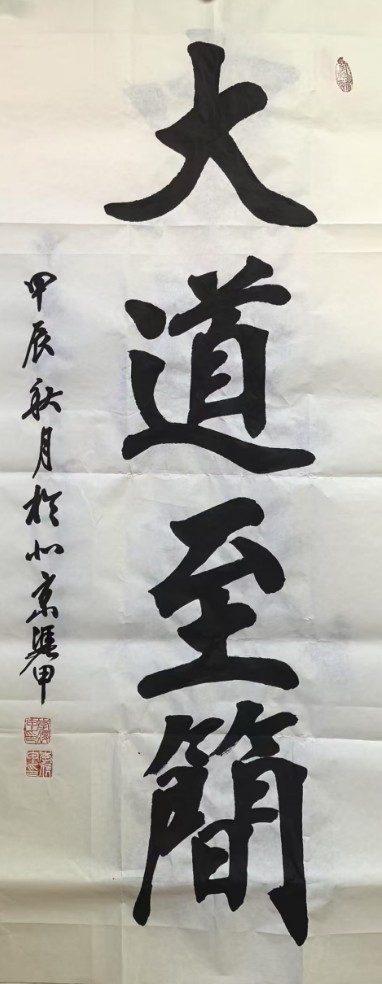 大道至簡
甲辰秋月於北京